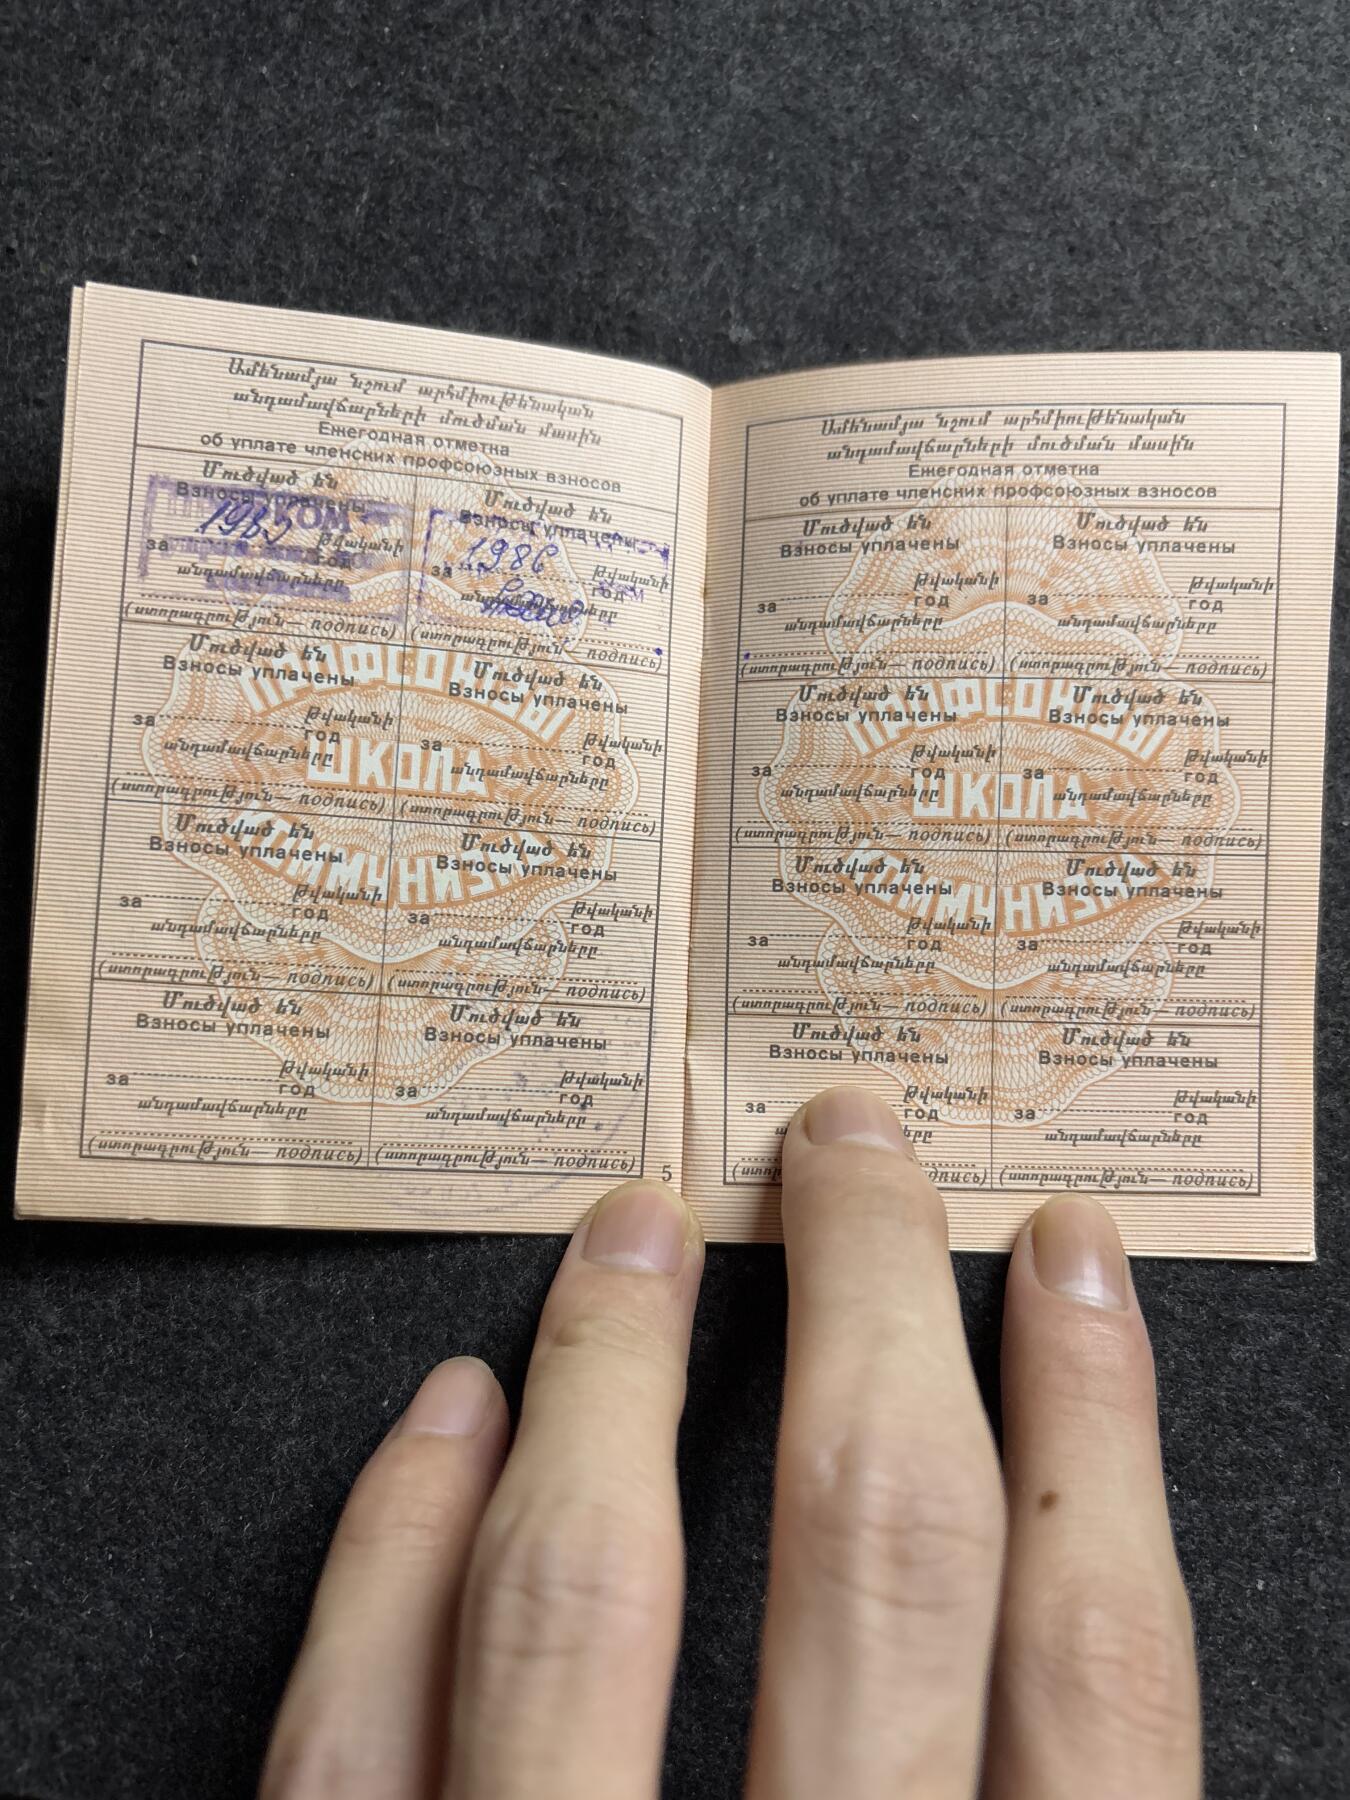 Ամենամյա նշում արհմիութենական
անդամավճարների մուծման մասին
Ежегодная отметка
об уплате членских профсоюзных взносов
Մուծված են
Взносы уплачены
1985
за թվականի
год
անդամավճարները
(ստորագրություն — подпись)
Մուծված են
Взносы уплачены
1986
за թվականի
год
անդամավճարները
(ստորագրություն — подпись)
Մուծված են
Взносы уплачены
за թվականի
год
անդամավճարները
(ստորագրություն — подпись)
Մուծված են
Взносы уплачены
за թվականի
год
անդամավճարները
(ստորագրություն — подпись)
Մուծված են
Взносы уплачены
за թվականի
год
անդամավճարները
(ստորագրություն — подпись)
Մուծված են
Взносы уплачены
за թվականի
год
անդամավճարները
(ստորագրություն — подпись)
Մուծված են
Взносы уплачены
за թվականի
год
անդամավճարները
(ստորագրություն — подпись)
Մուծված են
Взносы уплачены
за թվականի
год
անդամավճարները
(ստորագրություն — подпись)
ПРОФСОЮЗЫ
ШКОЛА
КОММУНИЗМА
5
Ամենամյա նշում արհմիութենական
անդամավճարների մուծման մասին
Ежегодная отметка
об уплате членских профсоюзных взносов
Մուծված են
Взносы уплачены
за թվականի
год
անդամավճարները
(ստորագրություն — подпись)
Մուծված են
Взносы уплачены
за թվականի
год
անդամավճարները
(ստորագրություն — подпись)
Մուծված են
Взносы уплачены
за թվականի
год
անդամավճարները
(ստորագրություն — подпись)
Մուծված են
Взносы уплачены
за թվականի
год
անդամավճարները
(ստորագրություն — подпись)
Մուծված են
Взносы уплачены
за թվականի
год
անդամավճարները
(ստորագրություն — подпись)
Մուծված են
Взносы уплачены
за թվականի
год
անդամավճարները
(ստորագրություն — подпись)
Մուծված են
Взносы уплачены
за թվականի
год
подпись)
Մուծված են
Взносы уплачены
за թվականի
год
անդամավճարները
(ստորագրություն — подпись)
ПРОФСОЮЗЫ
ШКОЛА
КОММУНИЗМА